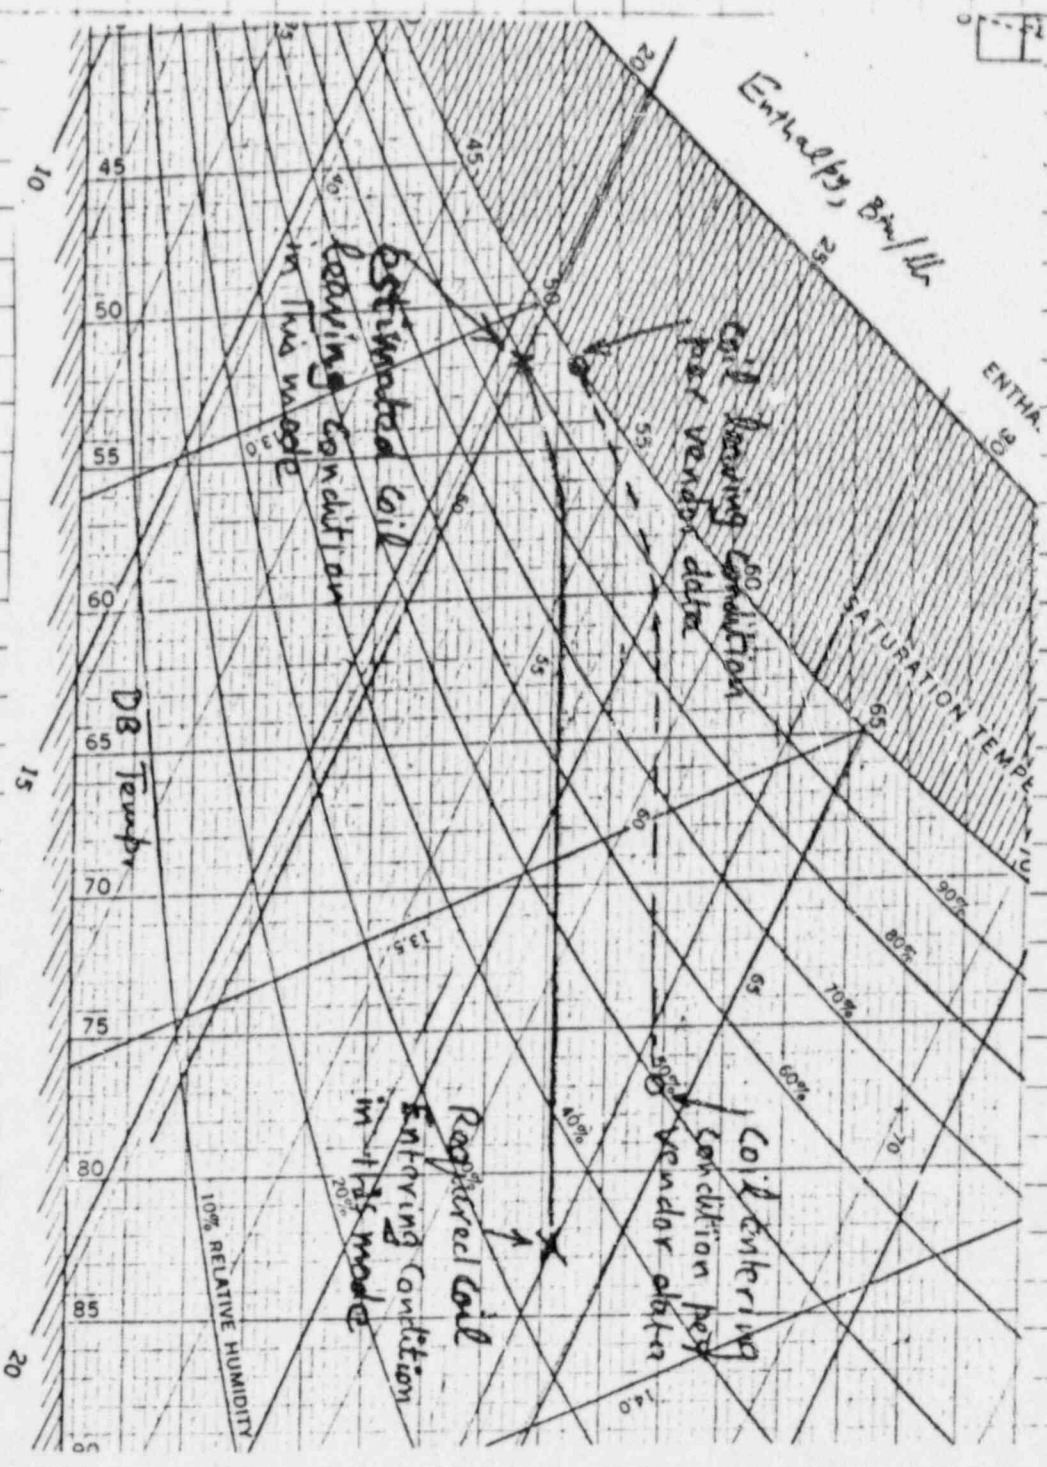 Enthalpy, Btu/lb
ENTHA
SATURATION TEMPE
20
25
30
45
50
55
60
65
70
Coil leaving condition
per vendor data
Estimated Coil
leaving condition
in this mode
Coil Entering
condition per
vendor data
Required Coil
Entering Condition
in this mode
DB Tempr
45
50
55
60
65
70
75
80
85
10
15
20
13.0
13.5
14.0
55
60
65
70
90%
80%
70%
60%
50%
40%
20%
10% RELATIVE HUMIDITY